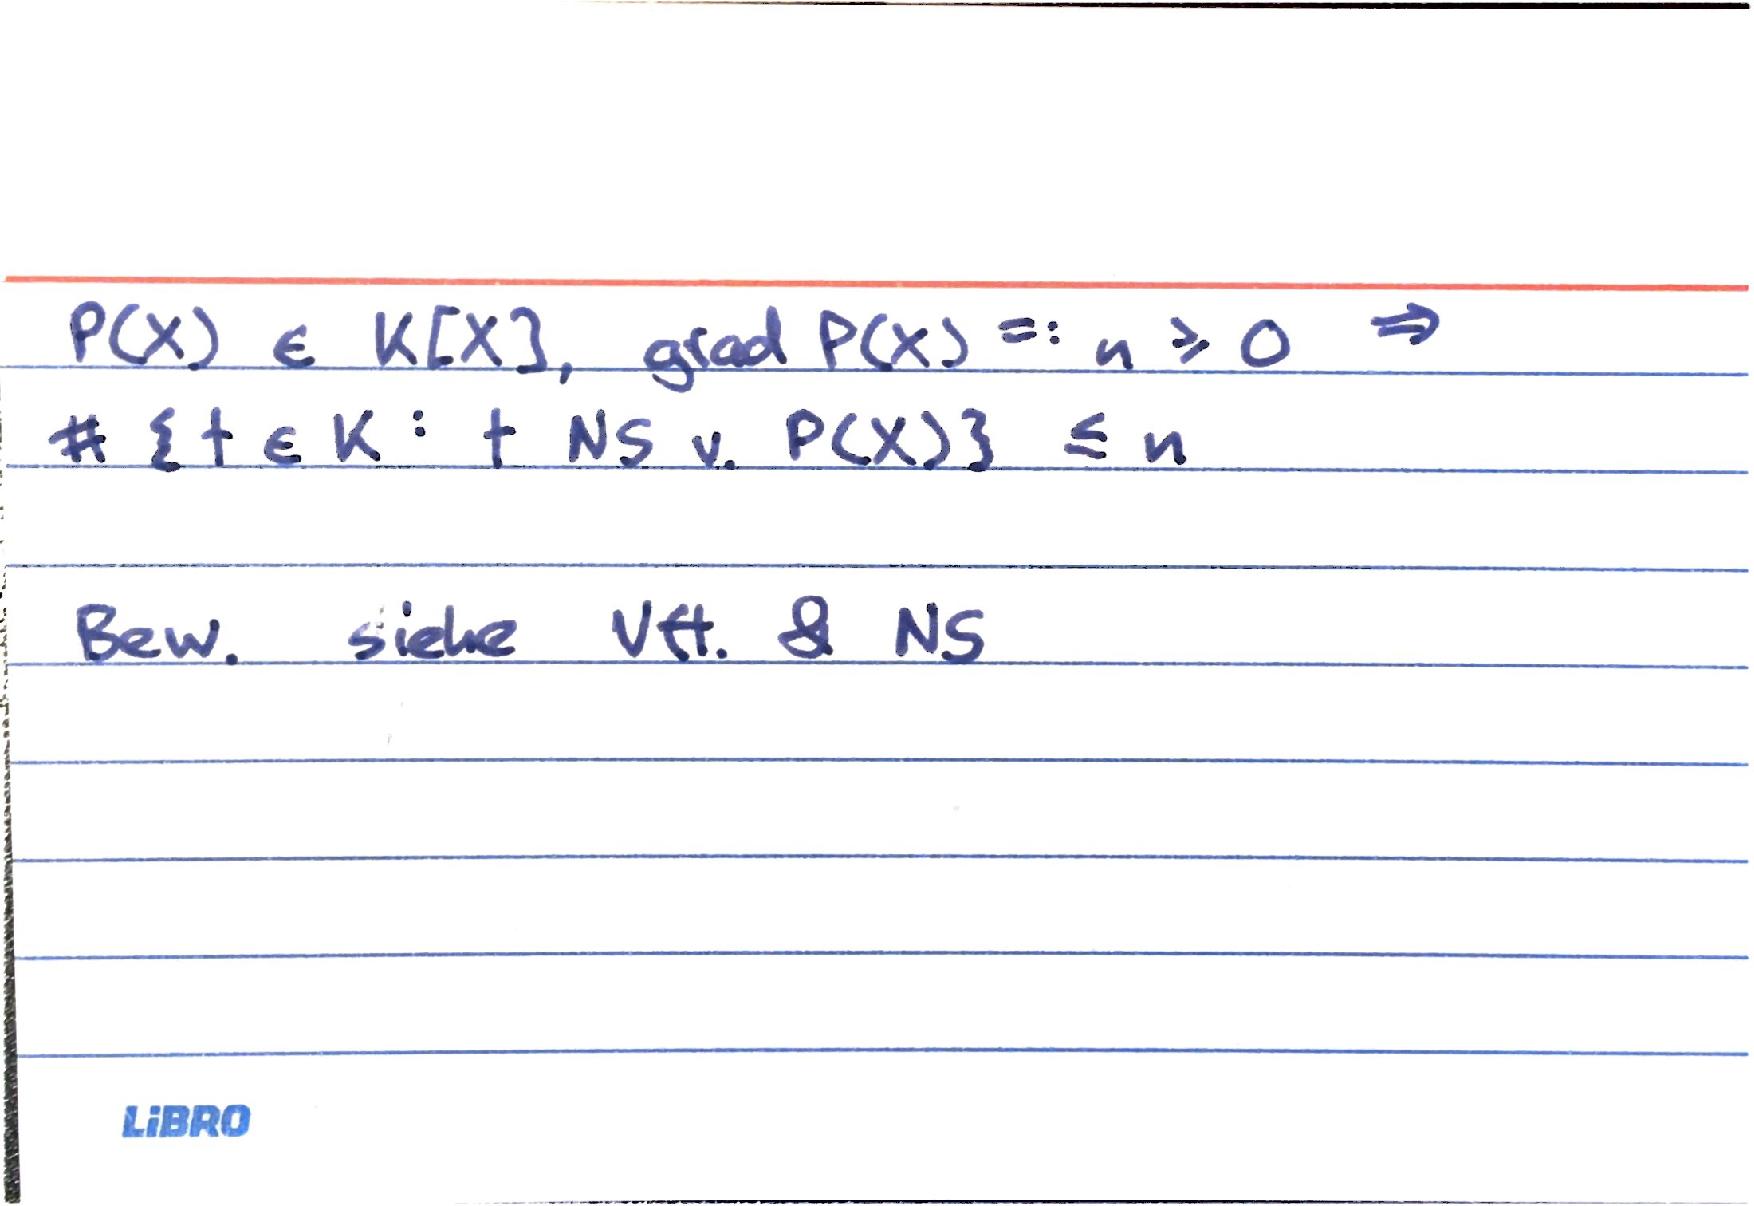 P(X) ∈ K[X], grad P(X) =: n ≥ 0 ⇒
# {t ∈ K : t NS v. P(X)} ≤ n
Bew. siehe Vft. & NS
LiBRO